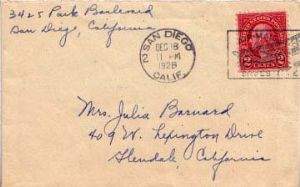 3425 Park Boulevard
San Diego, California
SAN DIEGO
2
DEC 18
11 PM
1928
CALIF.
2 CENTS 2
Mrs. Julia Barnard
409 W. Lexington Drive
Glendale, California